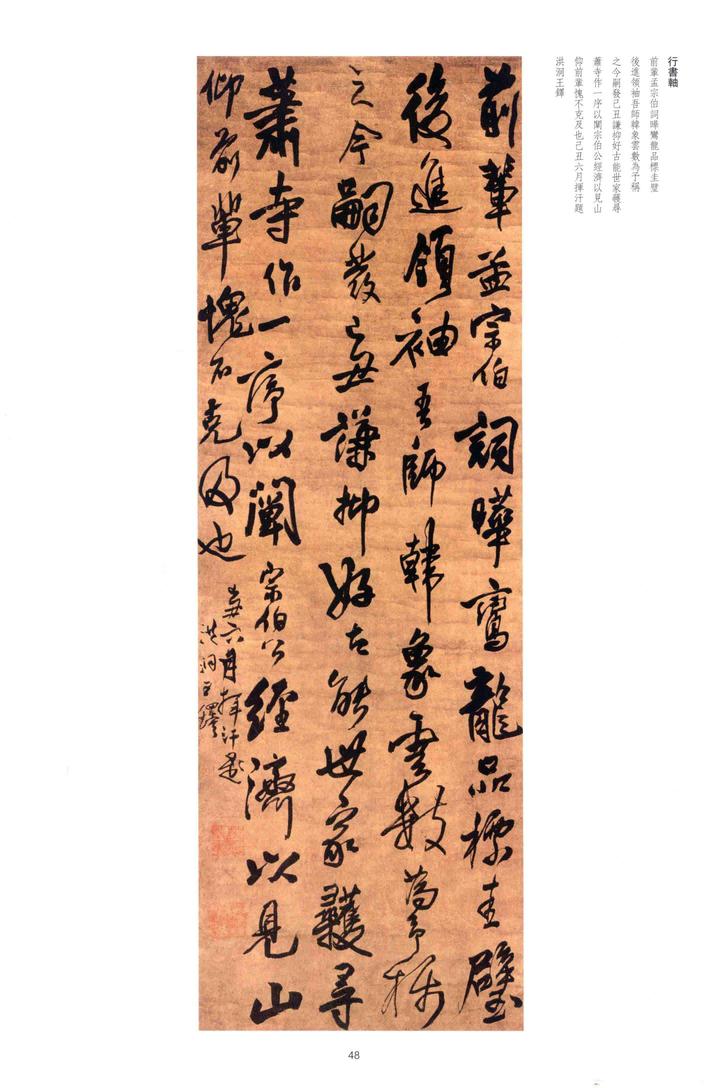 行書軸
前輩孟宗伯詞曄鸞龍品標圭璧
後進領袖吾師韓象雲數為予稱
之今嗣發己丑謙抑好古能世家蠖尋
蕭寺作一序以闡宗伯公經濟以見山
仰前輩愧不克及也己丑六月揮汗題
洪洞王鐸
前輩孟宗伯詞曄鸞龍品標圭璧
後進領袖吾師韓象雲數為予稱
之今嗣發己丑謙抑好古能世家蠖尋
蕭寺作一序以闡宗伯公經濟以見山
仰前輩愧不克及也
己丑六月揮汗題
洪洞王鐸
48